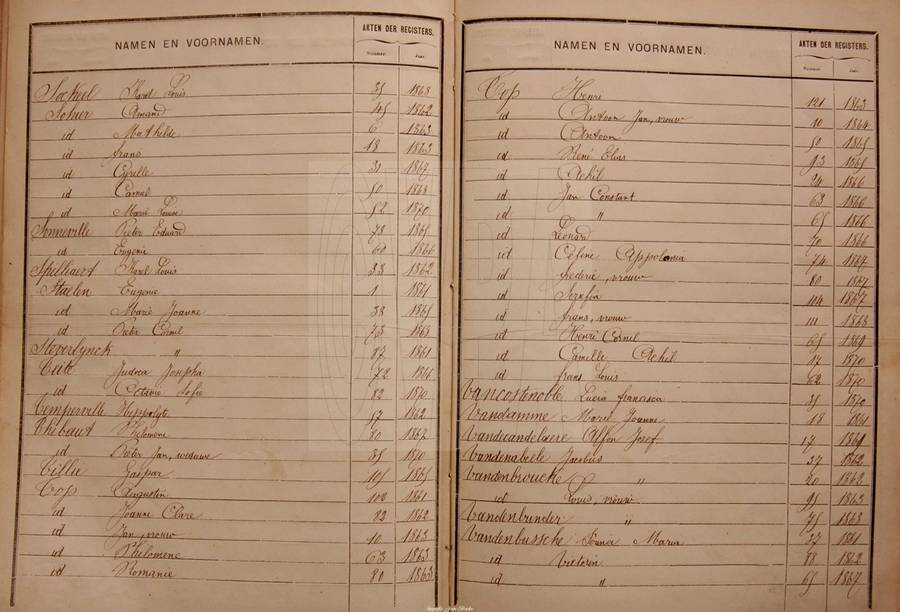 NAMEN EN VOORNAMEN. AKTEN DER REGISTERS.
Nummer. Jaar.
Karel Louis 35 1868
Amand 105 1862
id Mathilde 6 1863
id frans 18 1863
id Cyrille 31 1867
id Camiel 50 1868
id Marie Louise 52 1870
Sonneville Pieter Eduard 78 1861
id Eugenie 60 1866
Spilliaert Karel Louis 33 1862
Staelen Eugenie 1 1861
id Marie Joanne 38 1865
id Pieter Cornil 73 1863
Steverlynck " 87 1861
Judoca Josepha 72 1866
id Octavie Sofie 82 1870
Temperville Hippolyte 57 1862
Thibaut Philomene 80 1867
id Pieter Jan, weduwe 35 1870
Tillie Gaspar 105 1865
Top Augustin 100 1861
id Joanne Clare 82 1862
id Jan, vrouw 10 1863
id Philomene 63 1863
id Romanie 80 1863
NAMEN EN VOORNAMEN. AKTEN DER REGISTERS.
Nummer. Jaar.
Top Henri 121 1863
id Antoon Jan, vrouw 10 1864
id Antoon 50 1865
id René Elias 93 1865
id Achil 24 1866
id Jan Constant 63 1866
id " 65 1866
id Leonard 70 1866
id Céline Appolonia 74 1867
id frederic, vrouw 80 1867
id Serafin 104 1867
id frans, vrouw 111 1868
id Henri Cornil 65 1869
id Camille Achil 17 1870
id frans Louis 62 1870
Vancostenoble Lucia francisca 35 1870
Vandamme Marie Joanne 18 1861
Vandecandelaere Alfon Josef 17 1861
Vandenabeele Jacobus 37 1862
Vandenbroucke " 20 1862
id Louis, vrouw 95 1863
Vandenbunder " 75 1863
Vandenbussche Maria 27 1861
id Victorin 88 1862
id " 65 1867